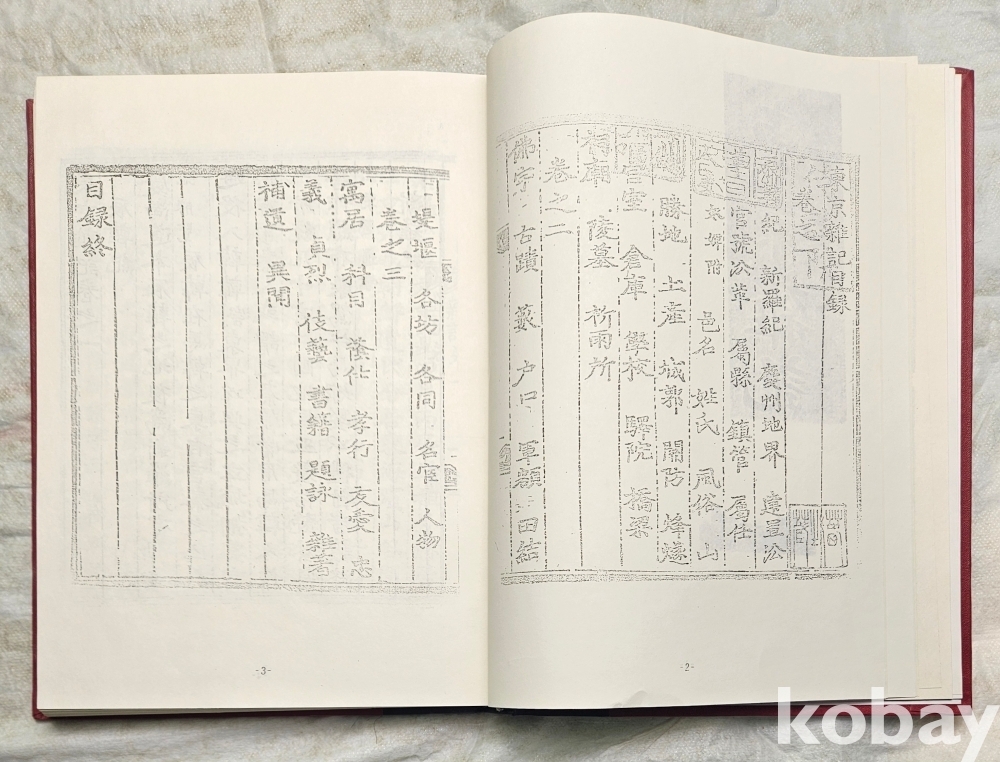 東京雜記目錄
卷之一
紀 新羅紀 慶州地界 建置沿
官號沿革 屬縣 鎭管 屬任
附 邑名 姓氏 風俗 山
勝地 土産 城郭 關防 烽燧
宮室 倉庫 學校 驛院 橋梁
祠廟 陵墓 祈雨所
卷之二
佛宇 古蹟 藪 戶口 軍額 田結
-2-
堤堰 各坊 各同 名宦 人物
卷之三
寓居 科目 蔭仕 孝行 友愛 忠
義 貞烈 伎藝 書籍 題詠 雜著
補遺 異聞
目錄終
-3-
kobay